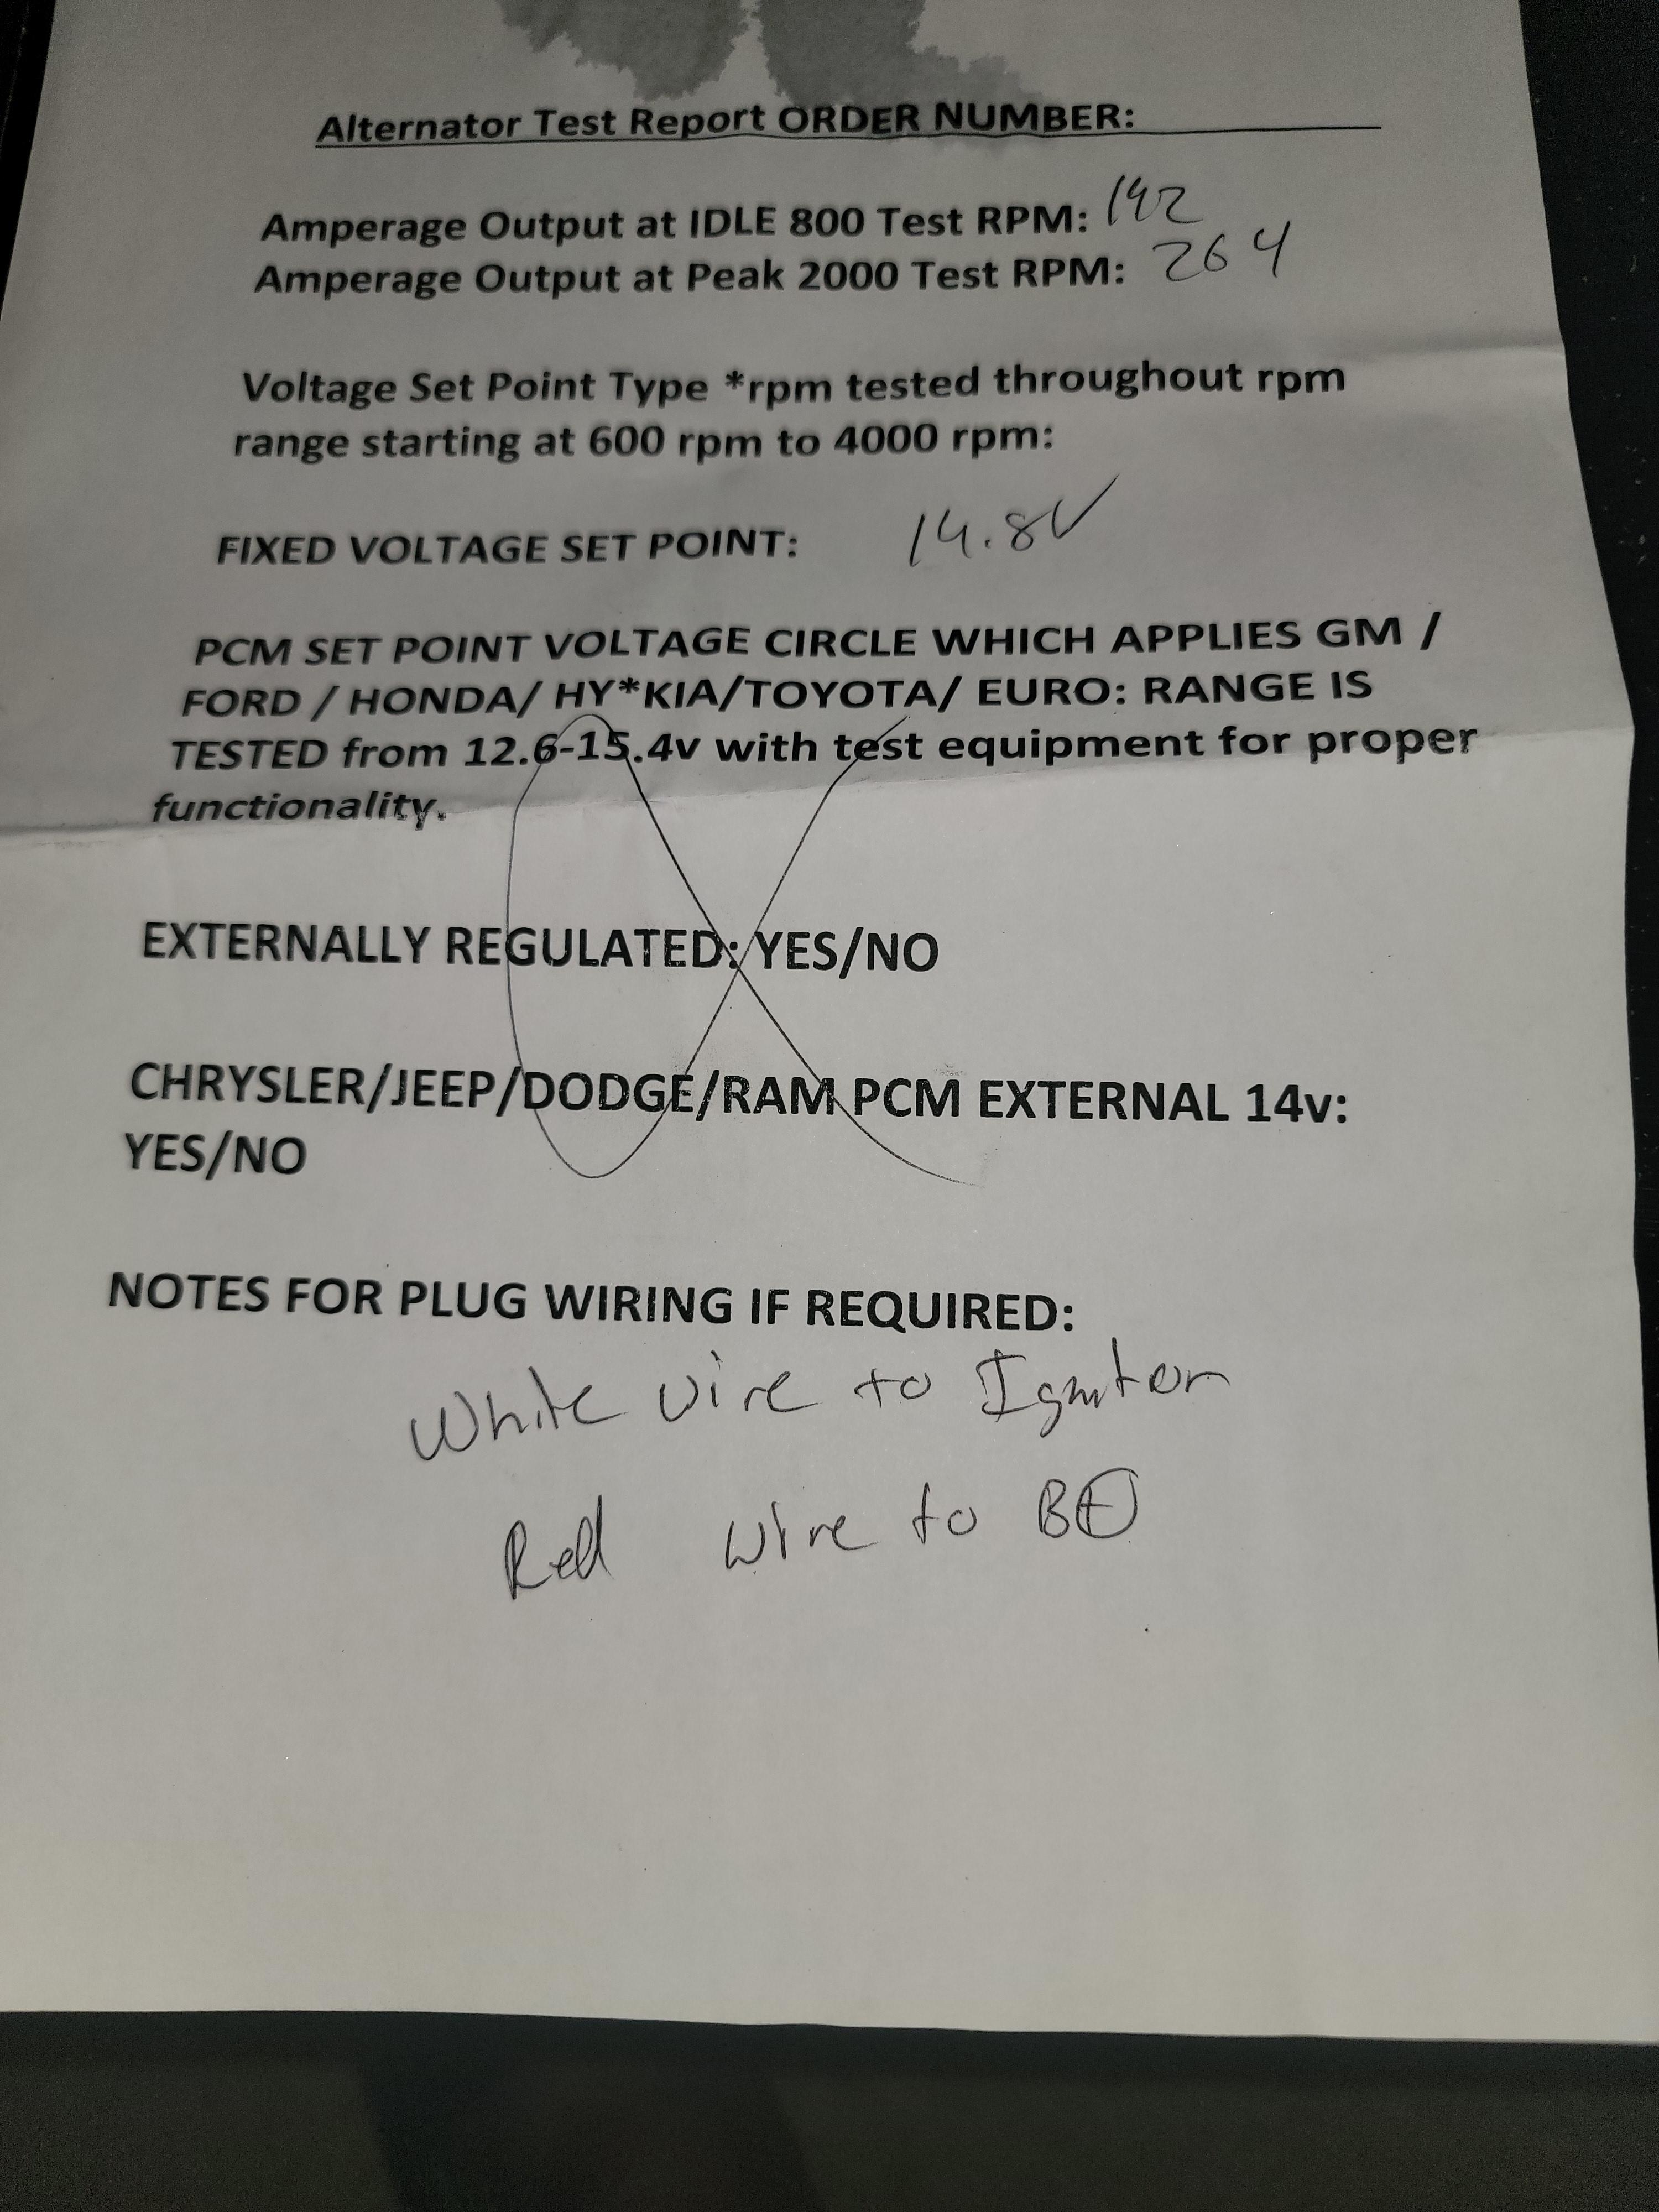 Alternator Test Report ORDER NUMBER:
Amperage Output at IDLE 800 Test RPM: 142
Amperage Output at Peak 2000 Test RPM: 264
Voltage Set Point Type *rpm tested throughout rpm
range starting at 600 rpm to 4000 rpm:
FIXED VOLTAGE SET POINT: 14.8V
PCM SET POINT VOLTAGE CIRCLE WHICH APPLIES GM /
FORD / HONDA/ HY*KIA/TOYOTA/ EURO: RANGE IS
TESTED from 12.6-15.4v with test equipment for proper
functionality.
EXTERNALLY REGULATED: YES/NO
CHRYSLER/JEEP/DODGE/RAM PCM EXTERNAL 14v:
YES/NO
NOTES FOR PLUG WIRING IF REQUIRED:
White wire to Ignitor
Red wire to B+